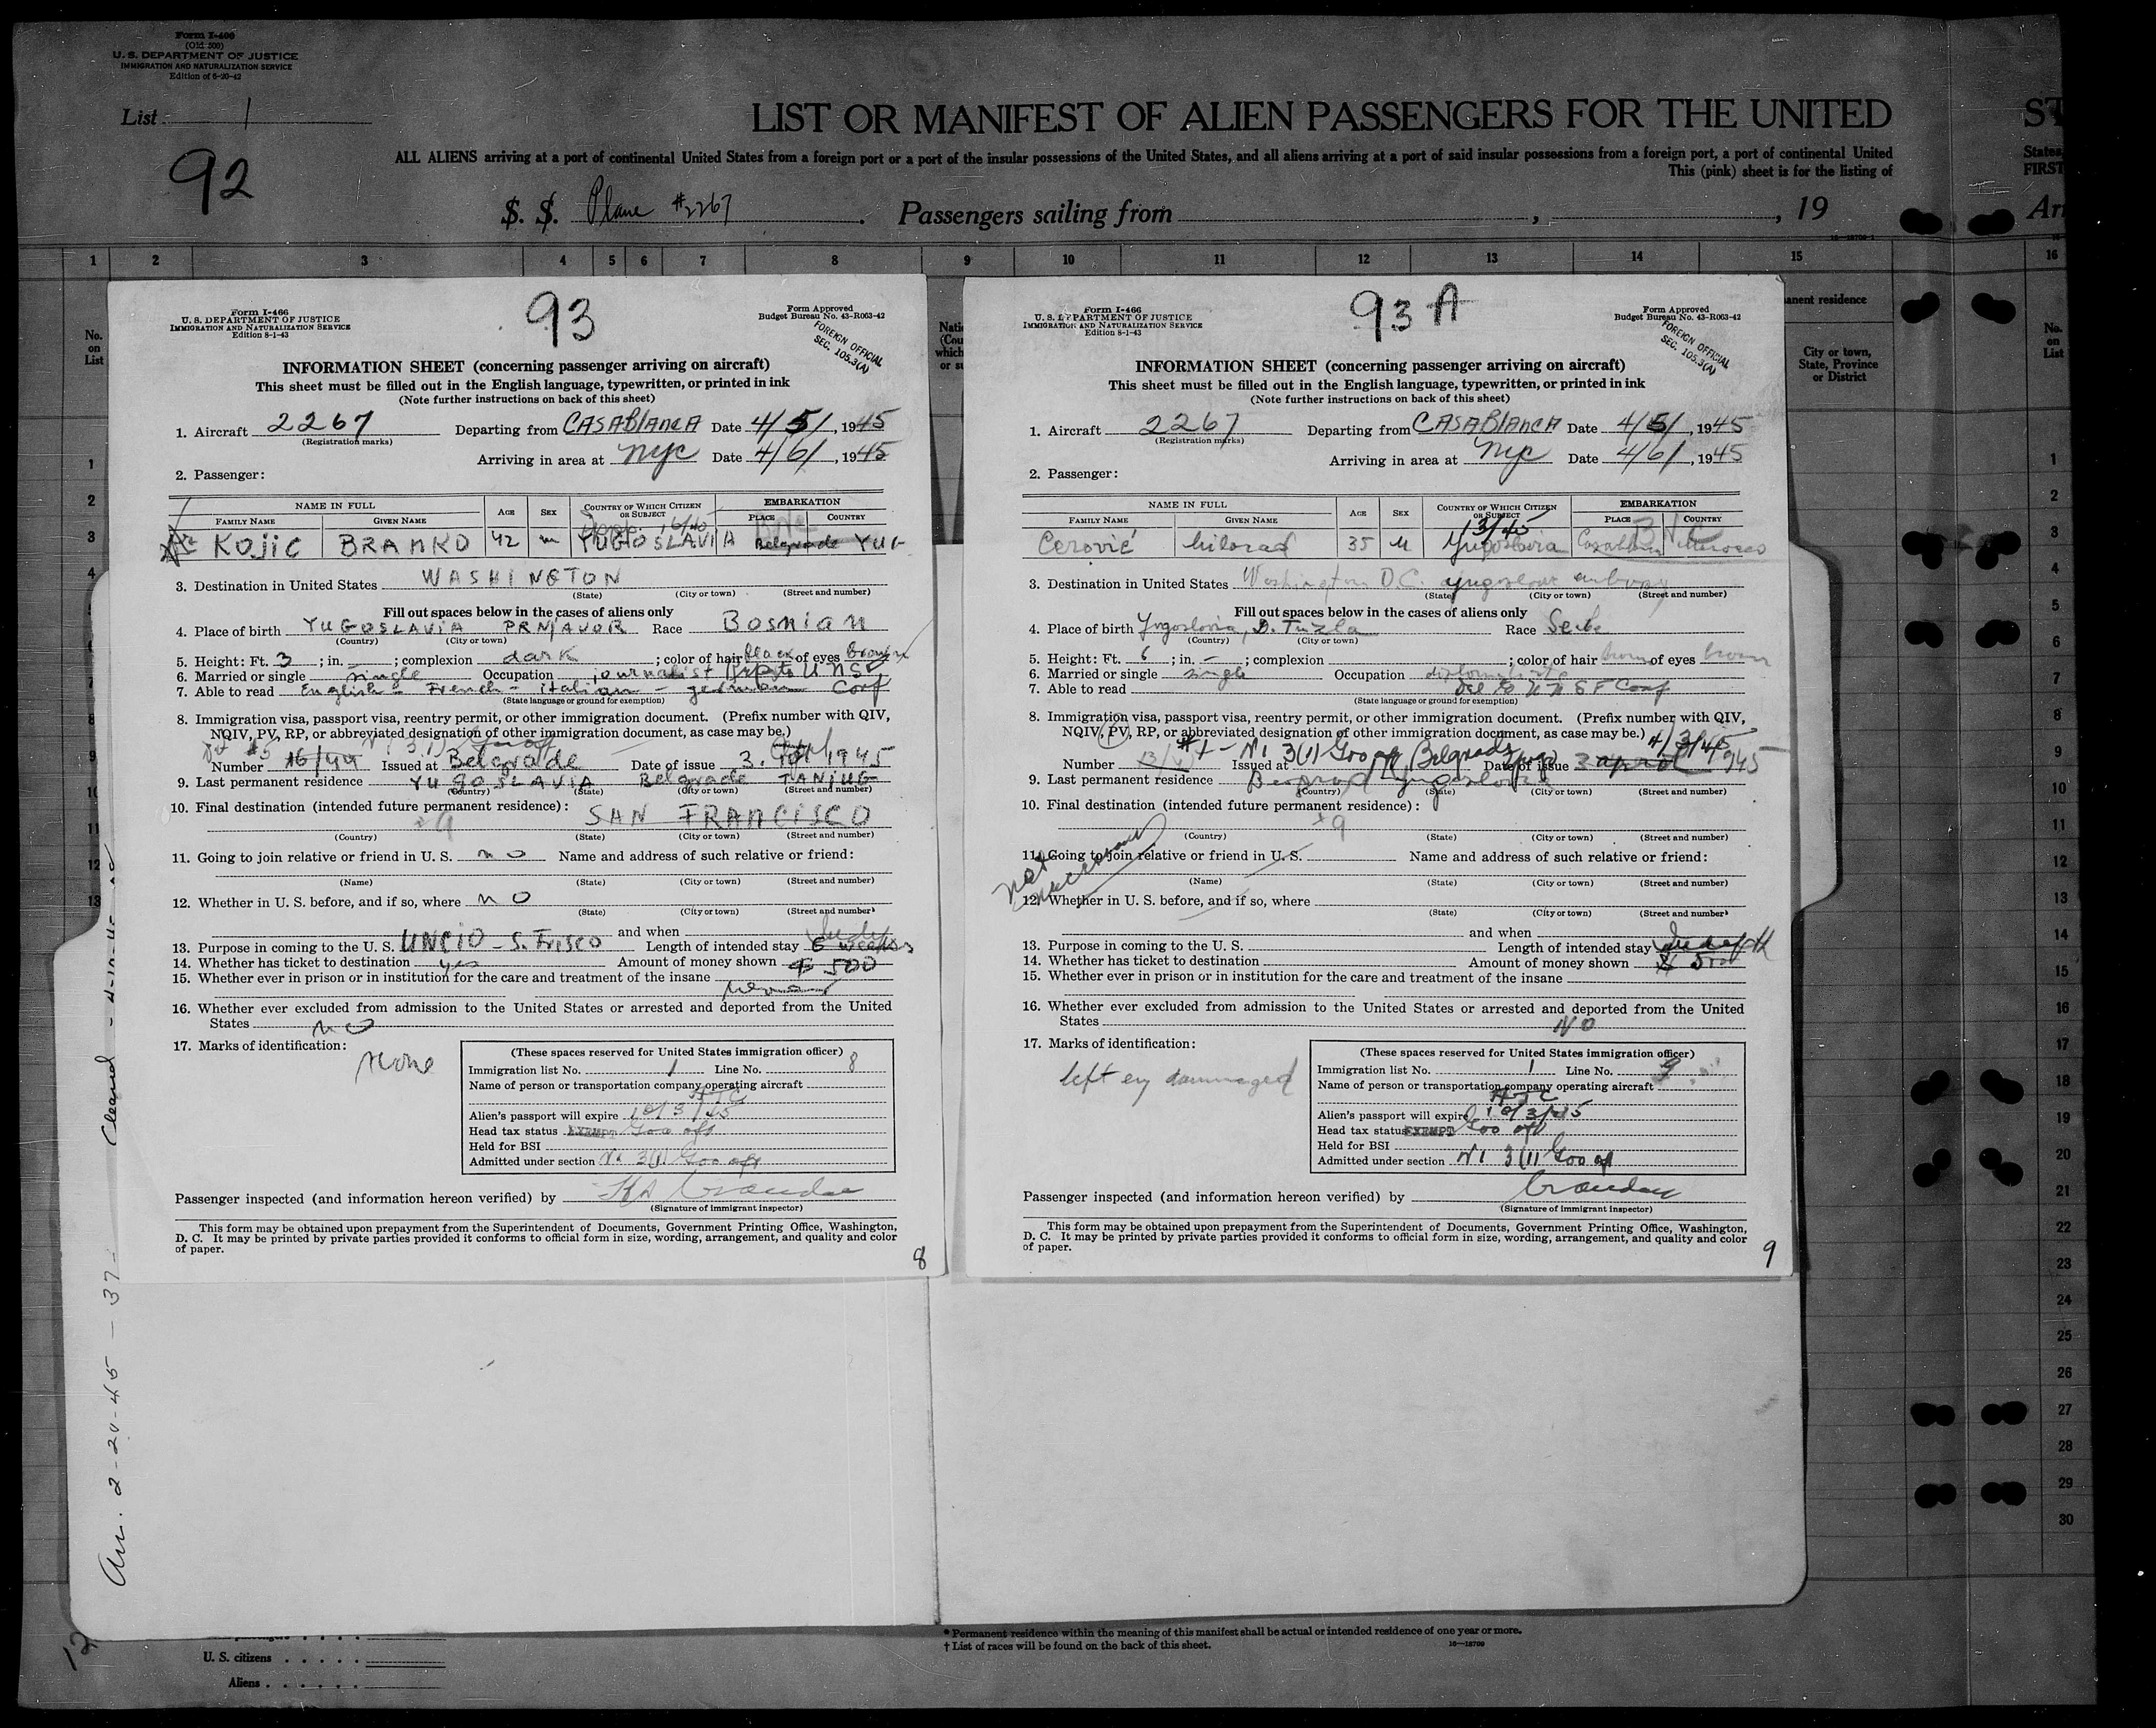 Form I-400
(Old 500)
U. S. DEPARTMENT OF JUSTICE
IMMIGRATION AND NATURALIZATION SERVICE
Edition of 6-20-42
List 1
92
LIST OR MANIFEST OF ALIEN PASSENGERS FOR THE UNITED
ST
ALL ALIENS arriving at a port of continental United States from a foreign port or a port of the insular possessions of the United States, and all aliens arriving at a port of said insular possessions from a foreign port, a port of continental United
States
This (pink) sheet is for the listing of
FIRST
S. S. Plane #2267. Passengers sailing from , , 19
1 2 3 4 5 6 7 8 9 10 11 12 13 14 15 16
No. on List
anent residence
City or town, State, Province or District
No. on List
93
Form I-466
U. S. DEPARTMENT OF JUSTICE
IMMIGRATION AND NATURALIZATION SERVICE
Edition 8-1-43
Form Approved
Budget Bureau No. 43-R063-42
FOREIGN OFFICIAL
SEC. 105.3(A)
INFORMATION SHEET (concerning passenger arriving on aircraft)
This sheet must be filled out in the English language, typewritten, or printed in ink
(Note further instructions on back of this sheet)
1. Aircraft 2267 Departing from CASABlANCA Date 4/5/, 1945
(Registration marks)
Arriving in area at nyc Date 4/6/, 1945
2. Passenger:
NAME IN FULL AGE SEX COUNTRY OF WHICH CITIZEN OR SUBJECT EMBARKATION
FAMILY NAME GIVEN NAME PLACE COUNTRY
KOJIC BRANKO 42 m YUGOSLAVIA Belgrade YUG
3. Destination in United States WASHINGTON
(State) (City or town) (Street and number)
Fill out spaces below in the cases of aliens only
4. Place of birth YUGOSLAVIA PRNJAVOR Race Bosnian
(Country) (City or town)
5. Height: Ft. 3; in. ; complexion dark; color of hair black of eyes brown
6. Married or single single Occupation journalist UNSF
7. Able to read English - French - italian - german Conf
(State language or ground for exemption)
8. Immigration visa, passport visa, reentry permit, or other immigration document. (Prefix number with QIV,
NQIV, PV, RP, or abbreviated designation of other immigration document, as case may be.)
Number 16/44 Issued at Belgrade Date of issue 3. 1945
9. Last permanent residence YUGOSLAVIA Belgrade TANJUG
(Country) (State) (City or town) (Street and number)
10. Final destination (intended future permanent residence):
SAN FRANCISCO
(Country) (State) (City or town) (Street and number)
11. Going to join relative or friend in U. S. no Name and address of such relative or friend:
(Name) (State) (City or town) (Street and number)
12. Whether in U. S. before, and if so, where no
(State) (City or town) (Street and number)
and when
13. Purpose in coming to the U. S. UNCIO - S. Frisco Length of intended stay 6 weeks
14. Whether has ticket to destination yes Amount of money shown $ 500
15. Whether ever in prison or in institution for the care and treatment of the insane
16. Whether ever excluded from admission to the United States or arrested and deported from the United
States no
17. Marks of identification:
None
(These spaces reserved for United States immigration officer)
Immigration list No. 1 Line No. 8
Name of person or transportation company operating aircraft
ATC
Alien's passport will expire 10/3/45
Head tax status EXEMPT Goo off
Held for BSI
Admitted under section 3(1) Goo off
Passenger inspected (and information hereon verified) by
(Signature of immigrant inspector)
This form may be obtained upon prepayment from the Superintendent of Documents, Government Printing Office, Washington,
D. C. It may be printed by private parties provided it conforms to official form in size, wording, arrangement, and quality and color
of paper.
8
93 A
Form I-466
U. S. DEPARTMENT OF JUSTICE
IMMIGRATION AND NATURALIZATION SERVICE
Edition 8-1-43
Form Approved
Budget Bureau No. 43-R063-42
FOREIGN OFFICIAL
SEC. 105.3(A)
INFORMATION SHEET (concerning passenger arriving on aircraft)
This sheet must be filled out in the English language, typewritten, or printed in ink
(Note further instructions on back of this sheet)
1. Aircraft 2267 Departing from CASABlANCA Date 4/5/, 1945
(Registration marks)
Arriving in area at nyc Date 4/6/, 1945
2. Passenger:
NAME IN FULL AGE SEX COUNTRY OF WHICH CITIZEN OR SUBJECT EMBARKATION
FAMILY NAME GIVEN NAME PLACE COUNTRY
13/45
Cerović Milorad 35 M Yugoslavia
3. Destination in United States Washington D.C. yugoslav embassy
(State) (City or town) (Street and number)
Fill out spaces below in the cases of aliens only
4. Place of birth Yugoslavia, D. Tuzla Race Serbe
(Country) (City or town)
5. Height: Ft. 6; in. -; complexion ; color of hair brown of eyes brown
6. Married or single single Occupation
7. Able to read Del to UN SF Conf
(State language or ground for exemption)
8. Immigration visa, passport visa, reentry permit, or other immigration document. (Prefix number with QIV,
NQIV, PV, RP, or abbreviated designation of other immigration document, as case may be.) 4/3/45
Number Issued at 3(1) Goo off, Belgrade Date of issue 3 april 1945
9. Last permanent residence Beograd Yugoslavia
(Country) (State) (City or town) (Street and number)
10. Final destination (intended future permanent residence):
(Country) (State) (City or town) (Street and number)
not necessary
11. Going to join relative or friend in U. S. Name and address of such relative or friend:
(Name) (State) (City or town) (Street and number)
12. Whether in U. S. before, and if so, where
(State) (City or town) (Street and number)
and when
13. Purpose in coming to the U. S. Length of intended stay
14. Whether has ticket to destination Amount of money shown $ 500
15. Whether ever in prison or in institution for the care and treatment of the insane
16. Whether ever excluded from admission to the United States or arrested and deported from the United
States NO
17. Marks of identification:
left ey dammaged
(These spaces reserved for United States immigration officer)
Immigration list No. 1 Line No. 9
Name of person or transportation company operating aircraft
ATC
Alien's passport will expire 10/3/45
Head tax status EXEMPT Goo off
Held for BSI
Admitted under section 3(1) Goo off
Passenger inspected (and information hereon verified) by
(Signature of immigrant inspector)
This form may be obtained upon prepayment from the Superintendent of Documents, Government Printing Office, Washington,
D. C. It may be printed by private parties provided it conforms to official form in size, wording, arrangement, and quality and color
of paper.
9
* Permanent residence within the meaning of this manifest shall be actual or intended residence of one year or more.
† List of races will be found on the back of this sheet.
16—18709
U. S. citizens
Aliens